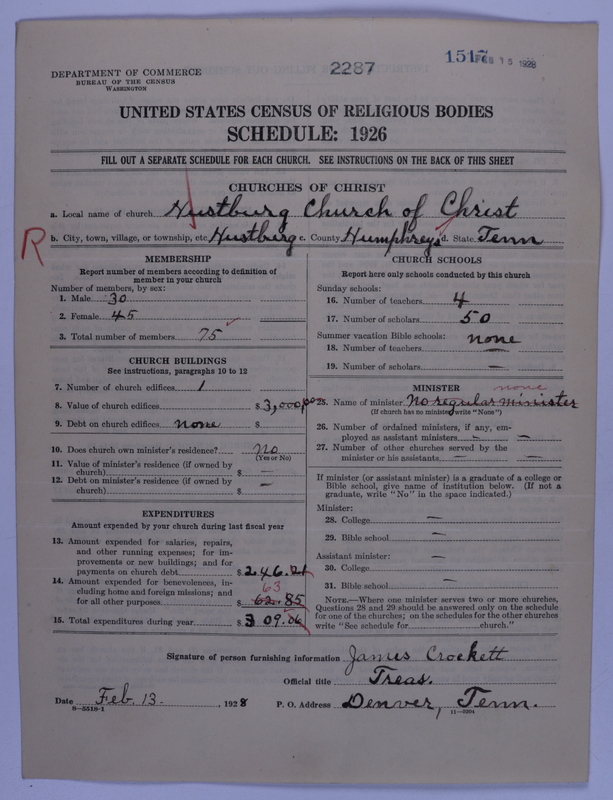 DEPARTMENT OF COMMERCE
BUREAU OF THE CENSUS
WASHINGTON
2287
1517 FEB 15 1928
UNITED STATES CENSUS OF RELIGIOUS BODIES
SCHEDULE: 1926
FILL OUT A SEPARATE SCHEDULE FOR EACH CHURCH. SEE INSTRUCTIONS ON THE BACK OF THIS SHEET
CHURCHES OF CHRIST
a. Local name of church Hustburg Church of Christ
R
b. City, town, village, or township, etc. Hustburg c. County Humphreys d. State Tenn
MEMBERSHIP
Report number of members according to definition of
member in your church
Number of members, by sex:
1. Male 30
2. Female 45
3. Total number of members 75
CHURCH BUILDINGS
See instructions, paragraphs 10 to 12
7. Number of church edifices 1
8. Value of church edifices $ 3,000.00
9. Debt on church edifices none $
10. Does church own minister's residence? No
(Yes or No)
11. Value of minister's residence (if owned by
church) $ —
12. Debt on minister's residence (if owned by
church) $ —
EXPENDITURES
Amount expended by your church during last fiscal year
13. Amount expended for salaries, repairs,
and other running expenses; for im-
provements or new buildings; and for
payments on church debt $ 246.21
14. Amount expended for benevolences, in-
cluding home and foreign missions; and
63
for all other purposes $ 62.85
15. Total expenditures during year $ 309.06
CHURCH SCHOOLS
Report here only schools conducted by this church
Sunday schools:
16. Number of teachers 4
17. Number of scholars 50
Summer vacation Bible schools: none
18. Number of teachers —
19. Number of scholars —
MINISTER none
25. Name of minister No regular minister
(If church has no minister, write "None")
26. Number of ordained ministers, if any, em-
ployed as assistant ministers — —
27. Number of other churches served by the
minister or his assistants — —
If minister (or assistant minister) is a graduate of a college or
Bible school, give name of institution below. (If not a
graduate, write "No" in the space indicated.)
Minister:
28. College —
29. Bible school —
Assistant minister: —
30. College
31. Bible school —
NOTE.—Where one minister serves two or more churches,
Questions 28 and 29 should be answered only on the schedule
for one of the churches; on the schedules for the other churches
write "See schedule for church."
Signature of person furnishing information James Crockett
Official title Treas.
Date Feb. 13, 1928 P. O. Address Denver, Tenn.
8—5518-1 11—9004